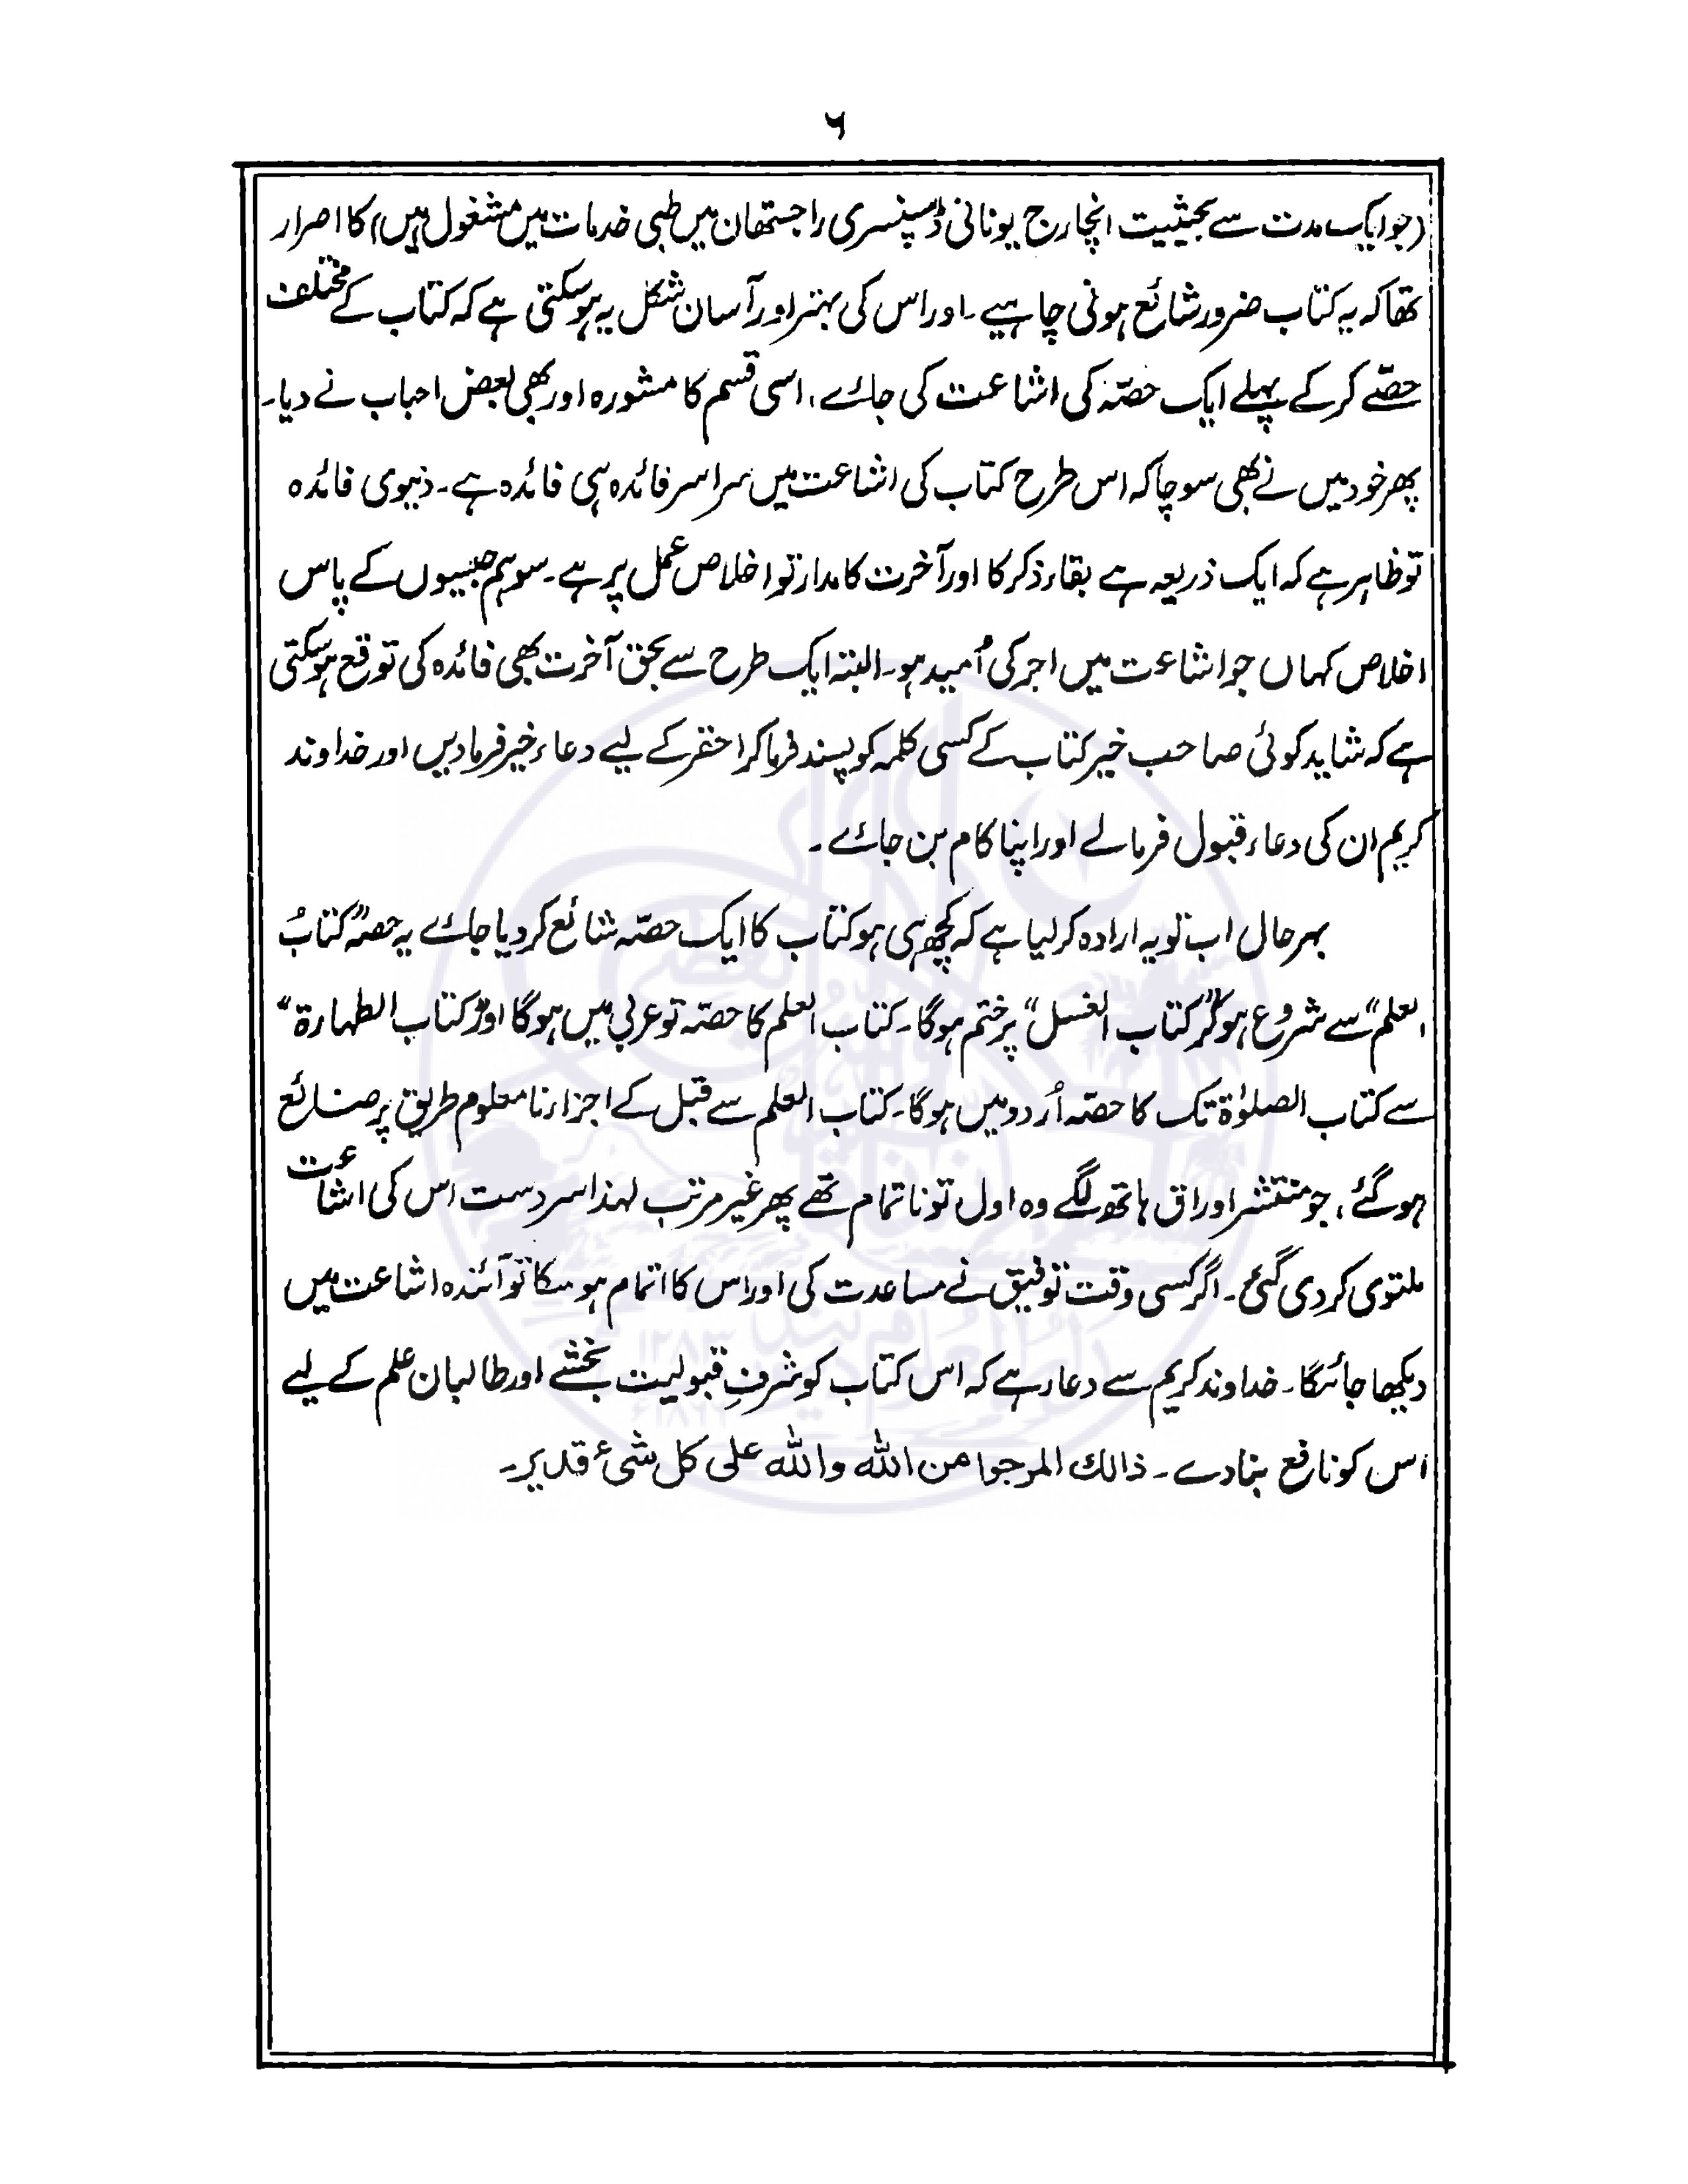 ۶
(جو ایک مدت سے بحیثیت انچارج یونانی ڈسپنسری راجستھان میں طبی خدمات میں مشغول ہیں) کا اصرار
تھا کہ یہ کتاب ضرور شائع ہونی چاہیے۔ اور اس کی بہتر اور آسان شکل یہ ہو سکتی ہے کہ کتاب کے مختلف
حصّے کر کے پہلے ایک حصّہ کی اشاعت کی جائے، اسی قسم کا مشورہ اور بھی بعض احباب نے دیا۔
پھر خود میں نے بھی سوچا کہ اس طرح کتاب کی اشاعت میں سراسر فائدہ ہی فائدہ ہے۔ دنیوی فائدہ
تو ظاہر ہے کہ ایک ذریعہ ہے بقاء ذکر کا اور آخرت کا مدار تو اخلاص عمل پر ہے۔ سو ہم جیسوں کے پاس
اخلاص کہاں جو اشاعت میں اجر کی اُمید ہو۔ البتہ ایک طرح سے بحق آخرت بھی فائدہ کی توقع ہو سکتی
ہے کہ شاید کوئی صاحب خیر کتاب کے کسی کلمہ کو پسند فرما کر احقر کے لیے دعاء خیر فرما دیں اور خداوند
کریم ان کی دعاء قبول فرمالے اور اپنا کام بن جائے۔
بہر حال اب تو یہ ارادہ کر لیا ہے کہ کچھ ہی ہو کتاب کا ایک حصّہ شائع کر دیا جائے یہ حصّہ ”کتابُ
العلم“ سے شروع ہو کر ”کتاب الغسل“ پر ختم ہوگا۔ کتاب العلم کا حصّہ تو عربی میں ہوگا اور ”کتاب الطہارة“
سے کتاب الصلوٰة تک کا حصّہ اُردو میں ہوگا۔ کتاب العلم سے قبل کے اجزاء نا معلوم طریق پر ضائع
ہو گئے، جو منتشر اوراق ہاتھ لگے وہ اول تو نا تمام تھے پھر غیر مرتب لہذا سر دست اس کی اشاعت
ملتوی کر دی گئی۔ اگر کسی وقت توفیق نے مساعدت کی اور اس کا اتمام ہو سکا تو آئندہ اشاعت میں
دیکھا جائیگا۔ خداوند کریم سے دعاء ہے کہ اس کتاب کو شرفِ قبولیت بخشے اور طالبان علم کے لیے
اس کو نافع بنا دے۔ ذالك المرجوا من الله والله على كل شئ قدير۔